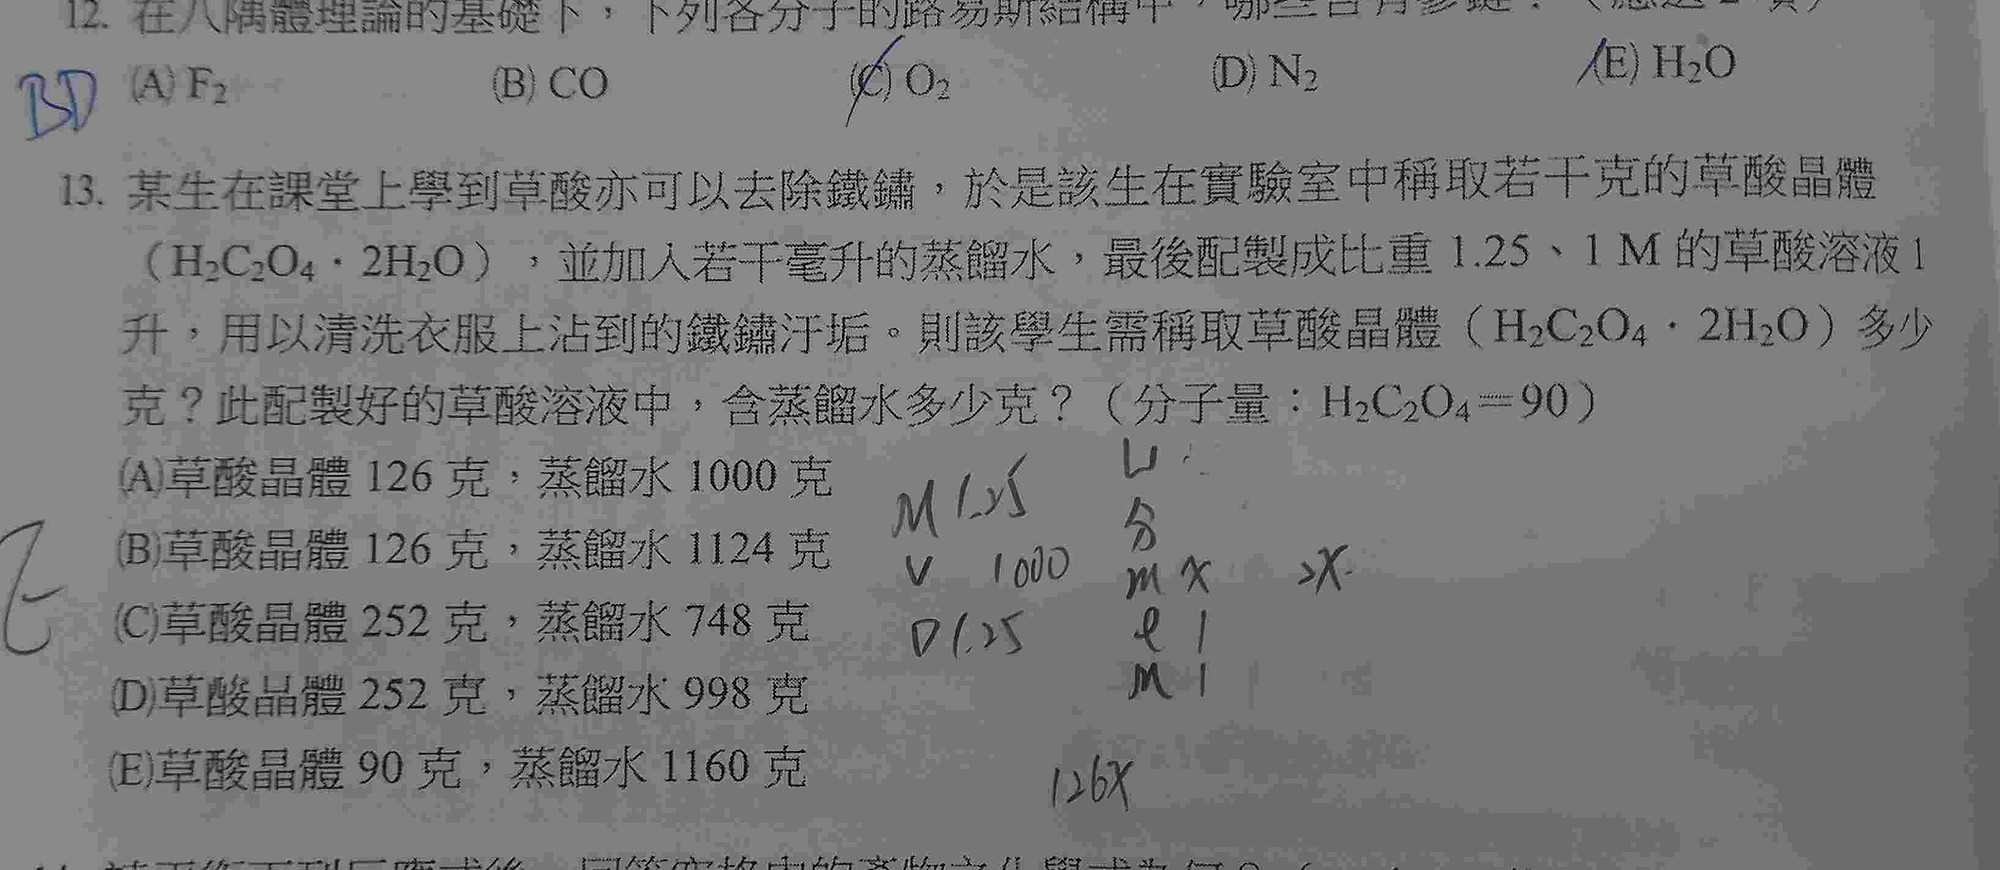 12. 在八隅體理論的基礎下，下列各分子的路易斯結構中，哪些含有參鍵？（應選 2 項）
BD (A) F₂ (B) CO (C) O₂ (D) N₂ (E) H₂O
13. 某生在課堂上學到草酸亦可以去除鐵鏽，於是該生在實驗室中稱取若干克的草酸晶體
（H₂C₂O₄・2H₂O），並加入若干毫升的蒸餾水，最後配製成比重 1.25、1 M 的草酸溶液 1
升，用以清洗衣服上沾到的鐵鏽汙垢。則該學生需稱取草酸晶體（H₂C₂O₄・2H₂O）多少
克？此配製好的草酸溶液中，含蒸餾水多少克？（分子量：H₂C₂O₄＝90）
(A)草酸晶體 126 克，蒸餾水 1000 克
(B)草酸晶體 126 克，蒸餾水 1124 克
(C)草酸晶體 252 克，蒸餾水 748 克
(D)草酸晶體 252 克，蒸餾水 998 克
(E)草酸晶體 90 克，蒸餾水 1160 克
E
M 1.25
V 1000
D 1.25
分
m x 2x
l 1
M 1
126x